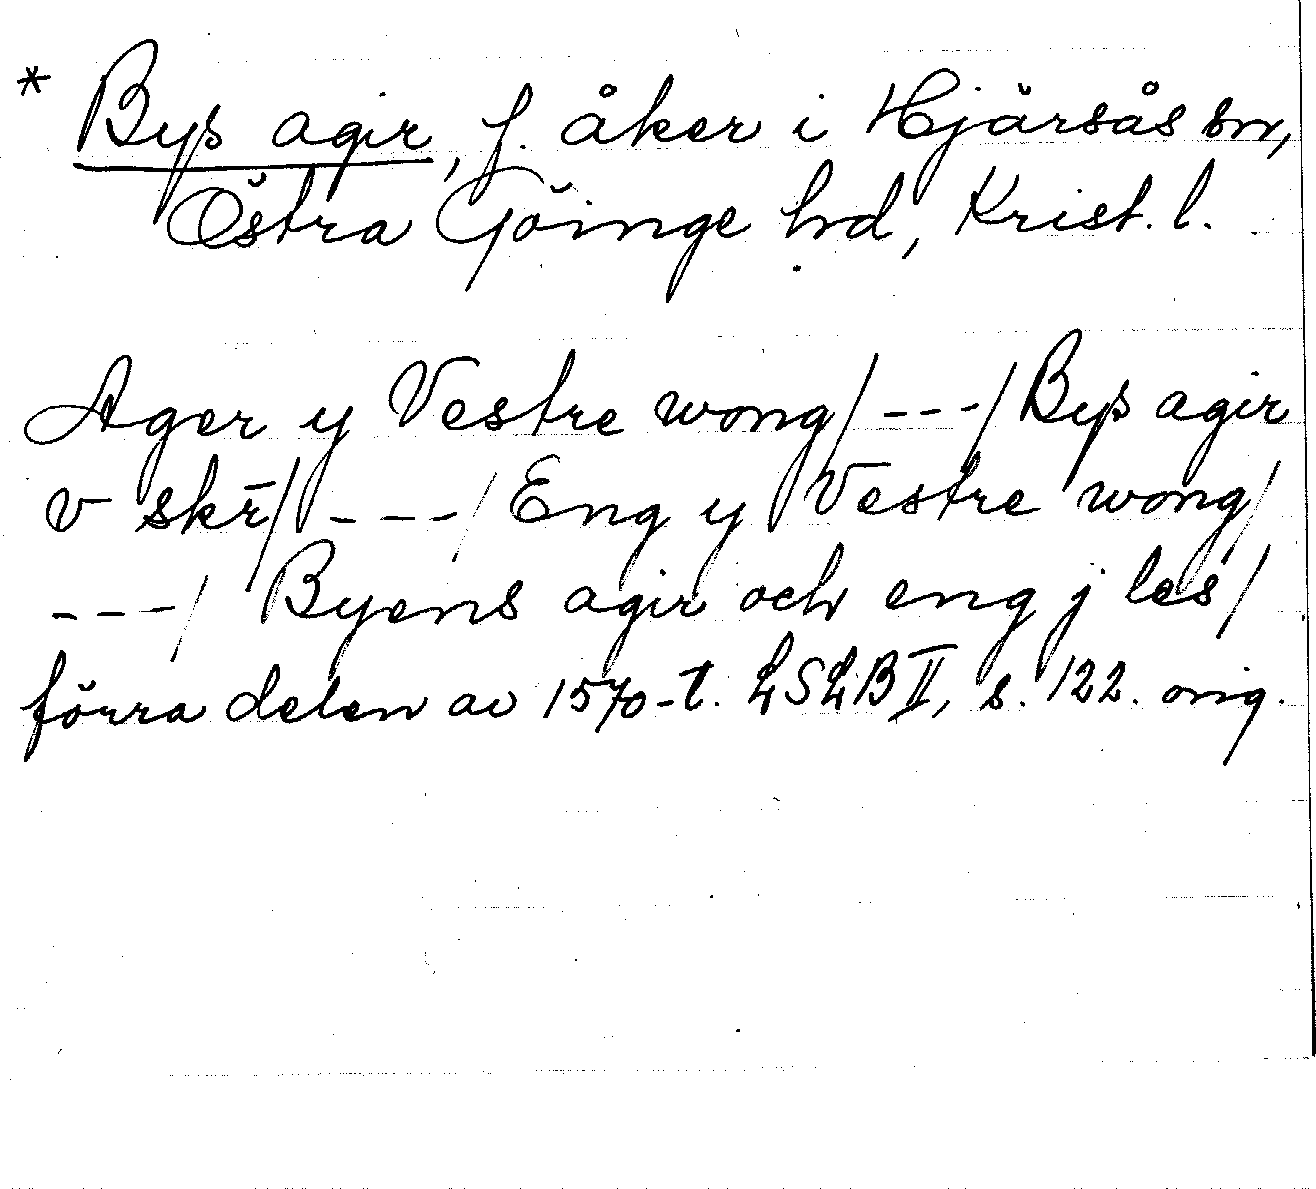 * Bys agir, f. åker i Hjärsås sn,
Östra Göinge hd, Krist. l.
Ager y Vestre wong/---/Bys agir
v skr̄/---/Eng y Vestre wong/
---/Byens agir och eng j les/
förra delen av 1570-t. LSLB II, s. 122. orig.